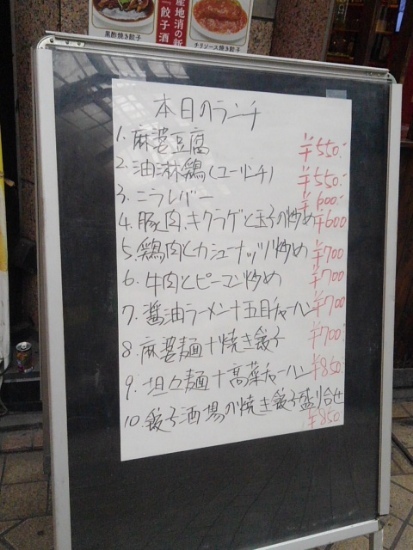 黒酢焼き餃子
産地消の新
『餃子酒
チリソース焼き餃子
本日のランチ
1. 麻婆豆腐 ¥550.-
2. 油淋鶏(ユーリンチ) ¥550.-
3. ニラレバー ¥600.-
4. 豚肉、キクラゲと玉子の炒め ¥600
5. 鶏肉とカシューナッツ炒め ¥700
6. 牛肉とピーマン炒め ¥700
7. 醤油ラーメン+五目チャーハン ¥700
8. 麻婆麺+焼き餃子 ¥700.-
9. 担々麺+高菜チャーハン ¥850
10. 餃子酒場の焼き餃子盛り合せ ¥850